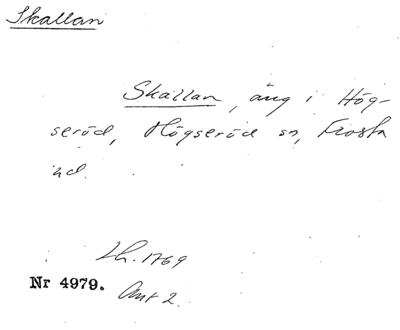 Skallan
Skallan, äng i Hög-
seröd, Högseröd sn, Frosta
hd.
Lh. 1769
Nr 4979.
Akt 2.